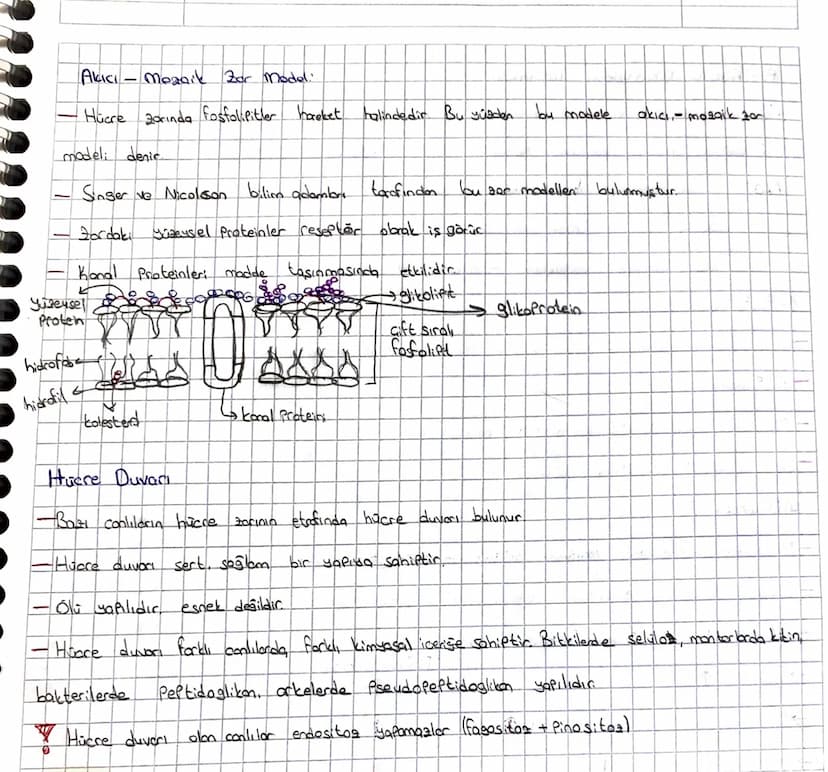 Akıcı – Mozaik Zar Modeli
– Hücre zarında fosfolipitler hareket halindedir Bu yüzden bu modele akıcı – mozaik zar
modeli denir
– Singer ve Nicolson bilim adamları tarafından bu zar modelleri bulunmuştur.
– Zardaki yüzeysel proteinler reseptör olarak iş görür
– Kanal proteinleri madde taşınmasında etkilidir
yüzeysel protein
glikolipit
glikoprotein
çift sıralı fosfolipit
hidrofob
hidrofil
kolesterol
kanal protein
Hücre Duvarı
– Bazı canlıların hücre zarının etrafında hücre duvarı bulunur.
– Hücre duvarı sert, sağlam bir yapıya sahiptir.
– Ölü yapılıdır, esnek değildir.
– Hücre duvarı farklı canlılarda, farklı kimyasal içeriğe sahiptir. Bitkilerde selüloz, mantarlarda kitin,
bakterilerde peptidoglikan, arkelerde pseudopeptidoglikan yapılıdır.
! Hücre duvarı olan canlılar endositoz yapamazlar (fagositoz + pinositoz)